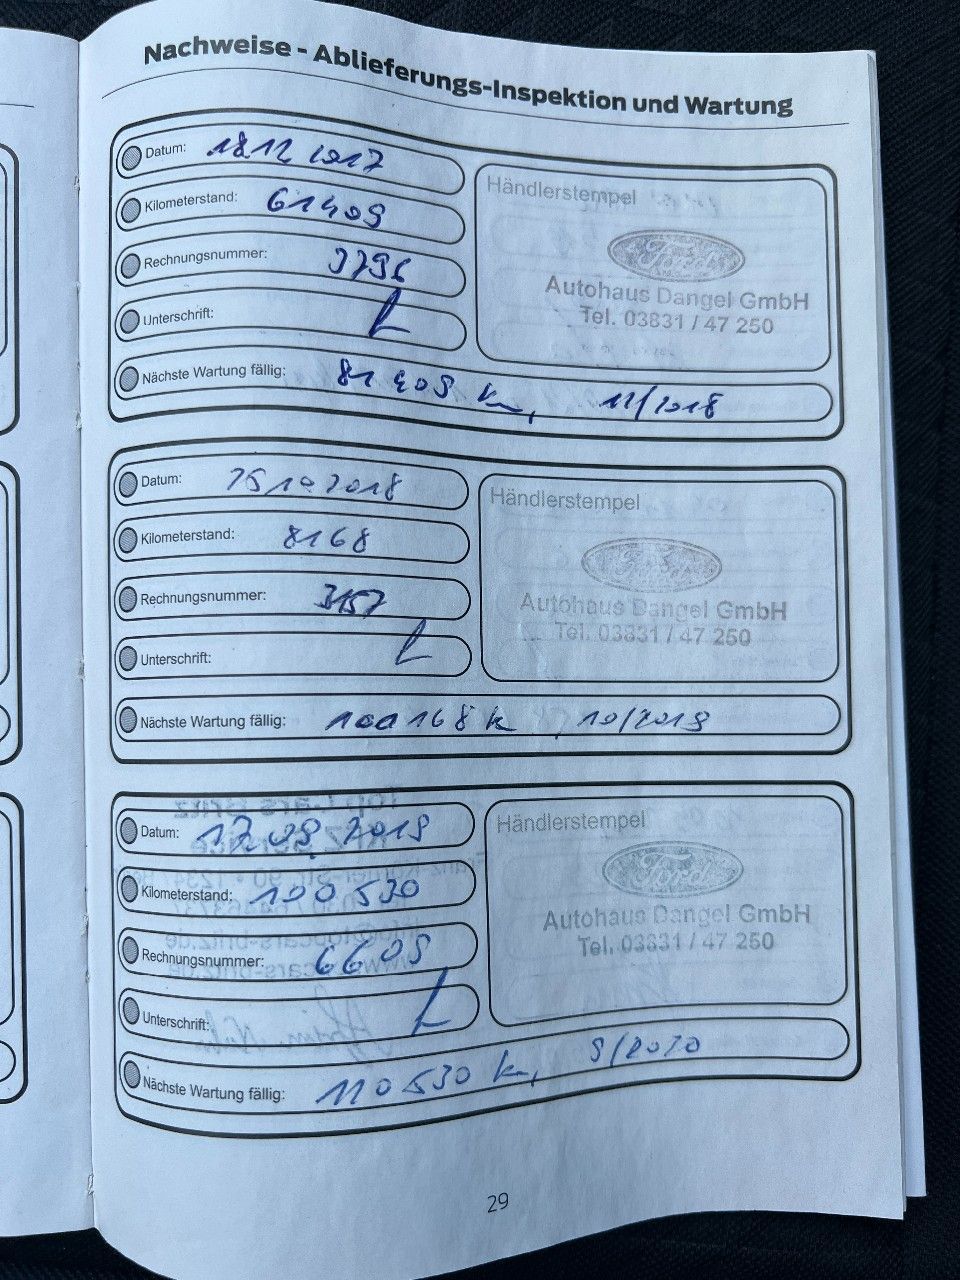 Nachweise - Ablieferungs-Inspektion und Wartung
Datum: 18.12 2017
Kilometerstand: 61409
Rechnungsnummer: 3796
Unterschrift:
Nächste Wartung fällig: 81409 km, 12/2018
Händlerstempel
Ford
Autohaus Dangel GmbH
Tel. 03831 / 47 250
Datum: 25 10 2018
Kilometerstand: 8168
Rechnungsnummer: 3157
Unterschrift:
Nächste Wartung fällig: 100168 k 10/2019
Händlerstempel
Ford
Autohaus Dangel GmbH
Tel. 03831 / 47 250
Datum: 17.09.2019
Kilometerstand: 100530
Rechnungsnummer: 6609
Unterschrift:
Nächste Wartung fällig: 110530 km, 9/2020
Händlerstempel
Ford
Autohaus Dangel GmbH
Tel. 03831 / 47 250
29